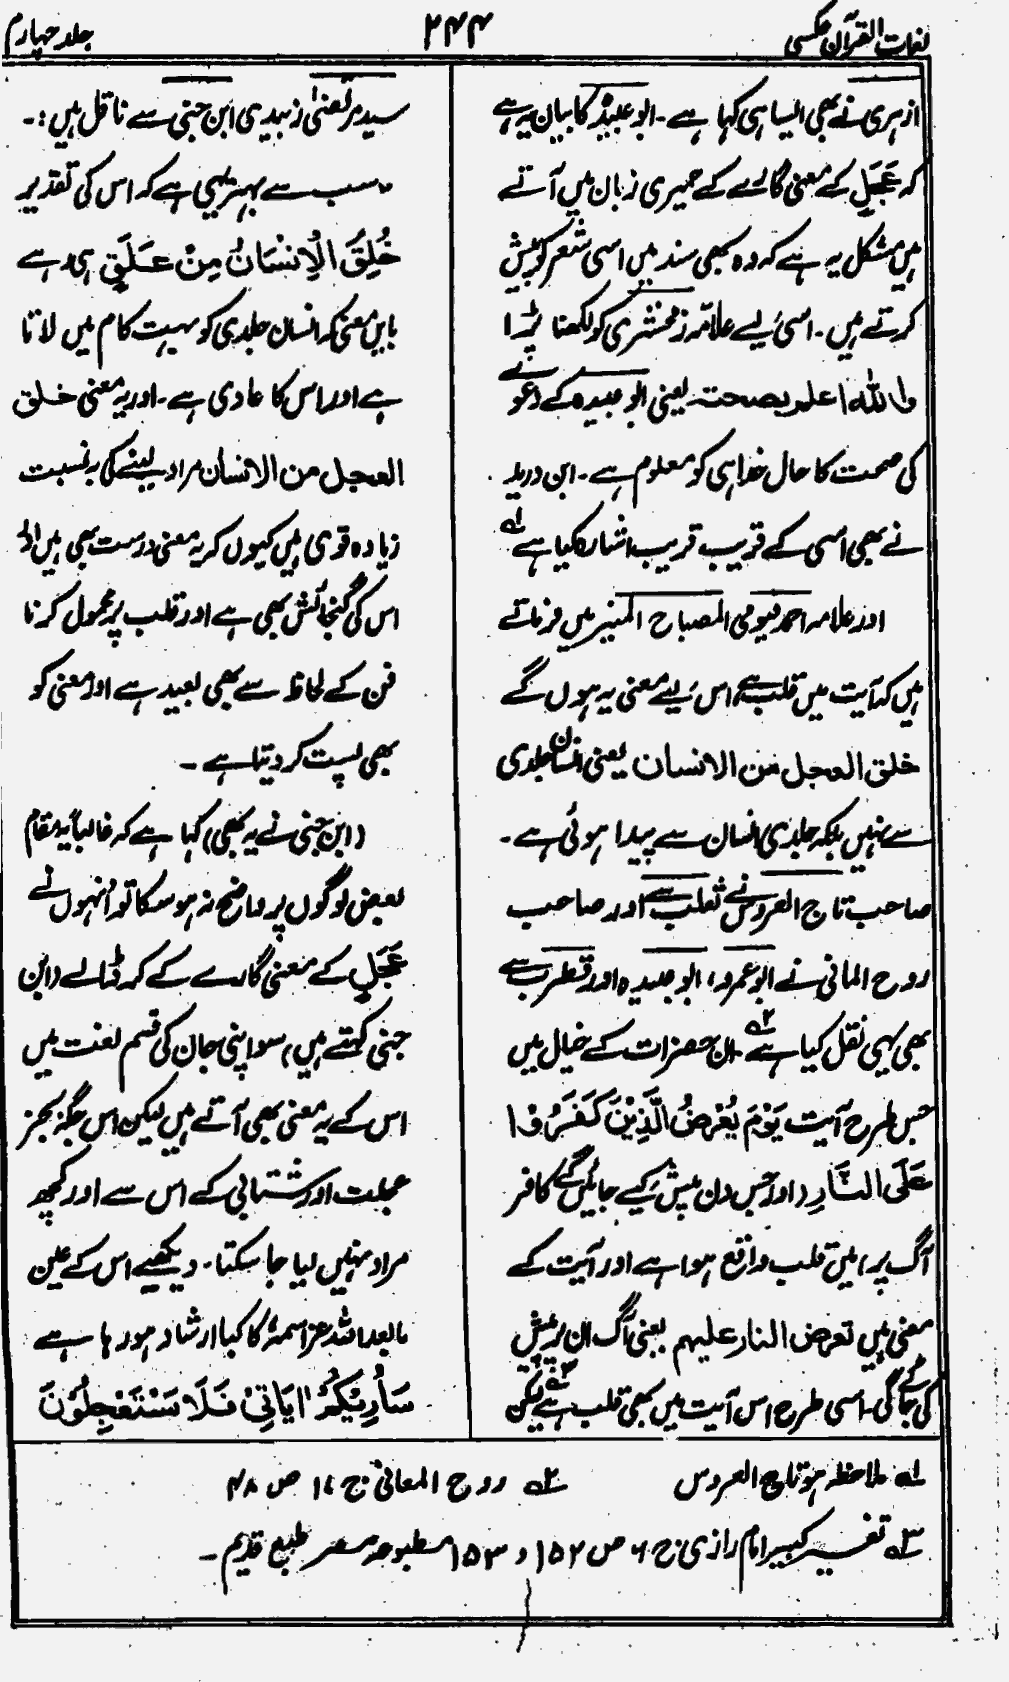 لغات القرآن عکسی
۲۴۴
جلد چہارم
ازہری نے بھی ایسا ہی کہا ہے۔ ابو عبیدؒ کا بیان یہ ہے
کہ عَجَلٍ کے معنی گارے کے حمیری زبان میں آتے
ہیں مشکل یہ ہے کہ وہ بھی سند میں اسی شعر کو پیش
کرتے ہیں۔ اسی لیے علامہ زمخشری کو لکھنا پڑا
واللہ اعلم بصحتہ یعنی ابو عبیدہ کے دعوے
کی صحت کا حال خدا ہی کو معلوم ہے۔ ابن درید
نے بھی اسی کے قریب قریب اشارہ کیا ہے ۱؎
اور علامہ احمد فیومی المصباح المنیر میں فرماتے
ہیں کہ آیت میں قلب ہے اس لیے معنی یہ ہوں گے
خلق العجل من الانسان یعنی انسان جلدی
سے نہیں بلکہ جلدی انسان سے پیدا ہوئی ہے۔
صاحب تاج العروس نے ثعلب سے اور صاحب
روح المعانی نے ابو عمرو، ابو عبیدہ اور قطرب سے
بھی یہی نقل کیا ہے ۲؎ ان حضرات کے خیال میں
جس طرح آیت یَوْمَ یُعْرَضُ الَّذِیْنَ کَفَرُوْا
عَلَی النَّارِ (اور جس دن پیش کیے جائیں گے کافر
آگ پر) میں قلب واقع ہوا ہے اور آیت کے
معنی ہیں تعرض النار علیہم یعنی آگ ان پر پیش
کی جائے گی۔ اسی طرح اس آیت میں بھی قلب ہے ۳؎ لیکن
سید مرتضیٰ زبیدی ابن جنی سے ناقل ہیں :۔
سب سے بہتر یہی ہے کہ اس کی تقدیر
خُلِقَ الْاِنْسَانُ مِنْ عَجَلٍ ہی ہے
بایں معنی کہ انسان جلدی کو بہت کام میں لاتا
ہے اور اس کا عادی ہے۔ اور یہ معنی خلق
العجل من الانسان مراد لینے کی بہ نسبت
زیادہ قوی ہیں کیوں کہ یہ معنی درست بھی ہیں اور
اس کی گنجائش بھی ہے اور قلب پر محمول کرنا
فن کے لحاظ سے بھی بعید ہے اور معنی کو
بھی پست کر دیتا ہے۔
(ابن جنی نے یہ بھی) کہا ہے کہ غالباً یہ مقام
بعض لوگوں پر واضح نہ ہو سکا تو اُنہوں نے
عَجَلٍ کے معنی گارے کے کہہ ڈالے (ابن
جنی کہتے ہیں) سو اپنی جان کی قسم لغت میں
اس کے یہ معنی بھی آتے ہیں لیکن اس جگہ بجز
عجلت اور شتابی کے اس سے اور کچھ
مراد نہیں لیا جا سکتا۔ دیکھیے اس کے عین
مابعد اللہ عز اسمہٗ کا کیا ارشاد ہو رہا ہے
سَاُرِیْکُمْ اٰیَاتِیْ فَلَا تَسْتَعْجِلُوْنَ
۱؎ ملاحظہ ہو تاج العروس ۲؎ روح المعانی ج ۱۷ ص ۴۸
۳؎ تفسیر کبیر امام رازی ج ۶ ص ۱۵۲ و ۱۵۳ مطبوعہ مصر طبع قدیم۔